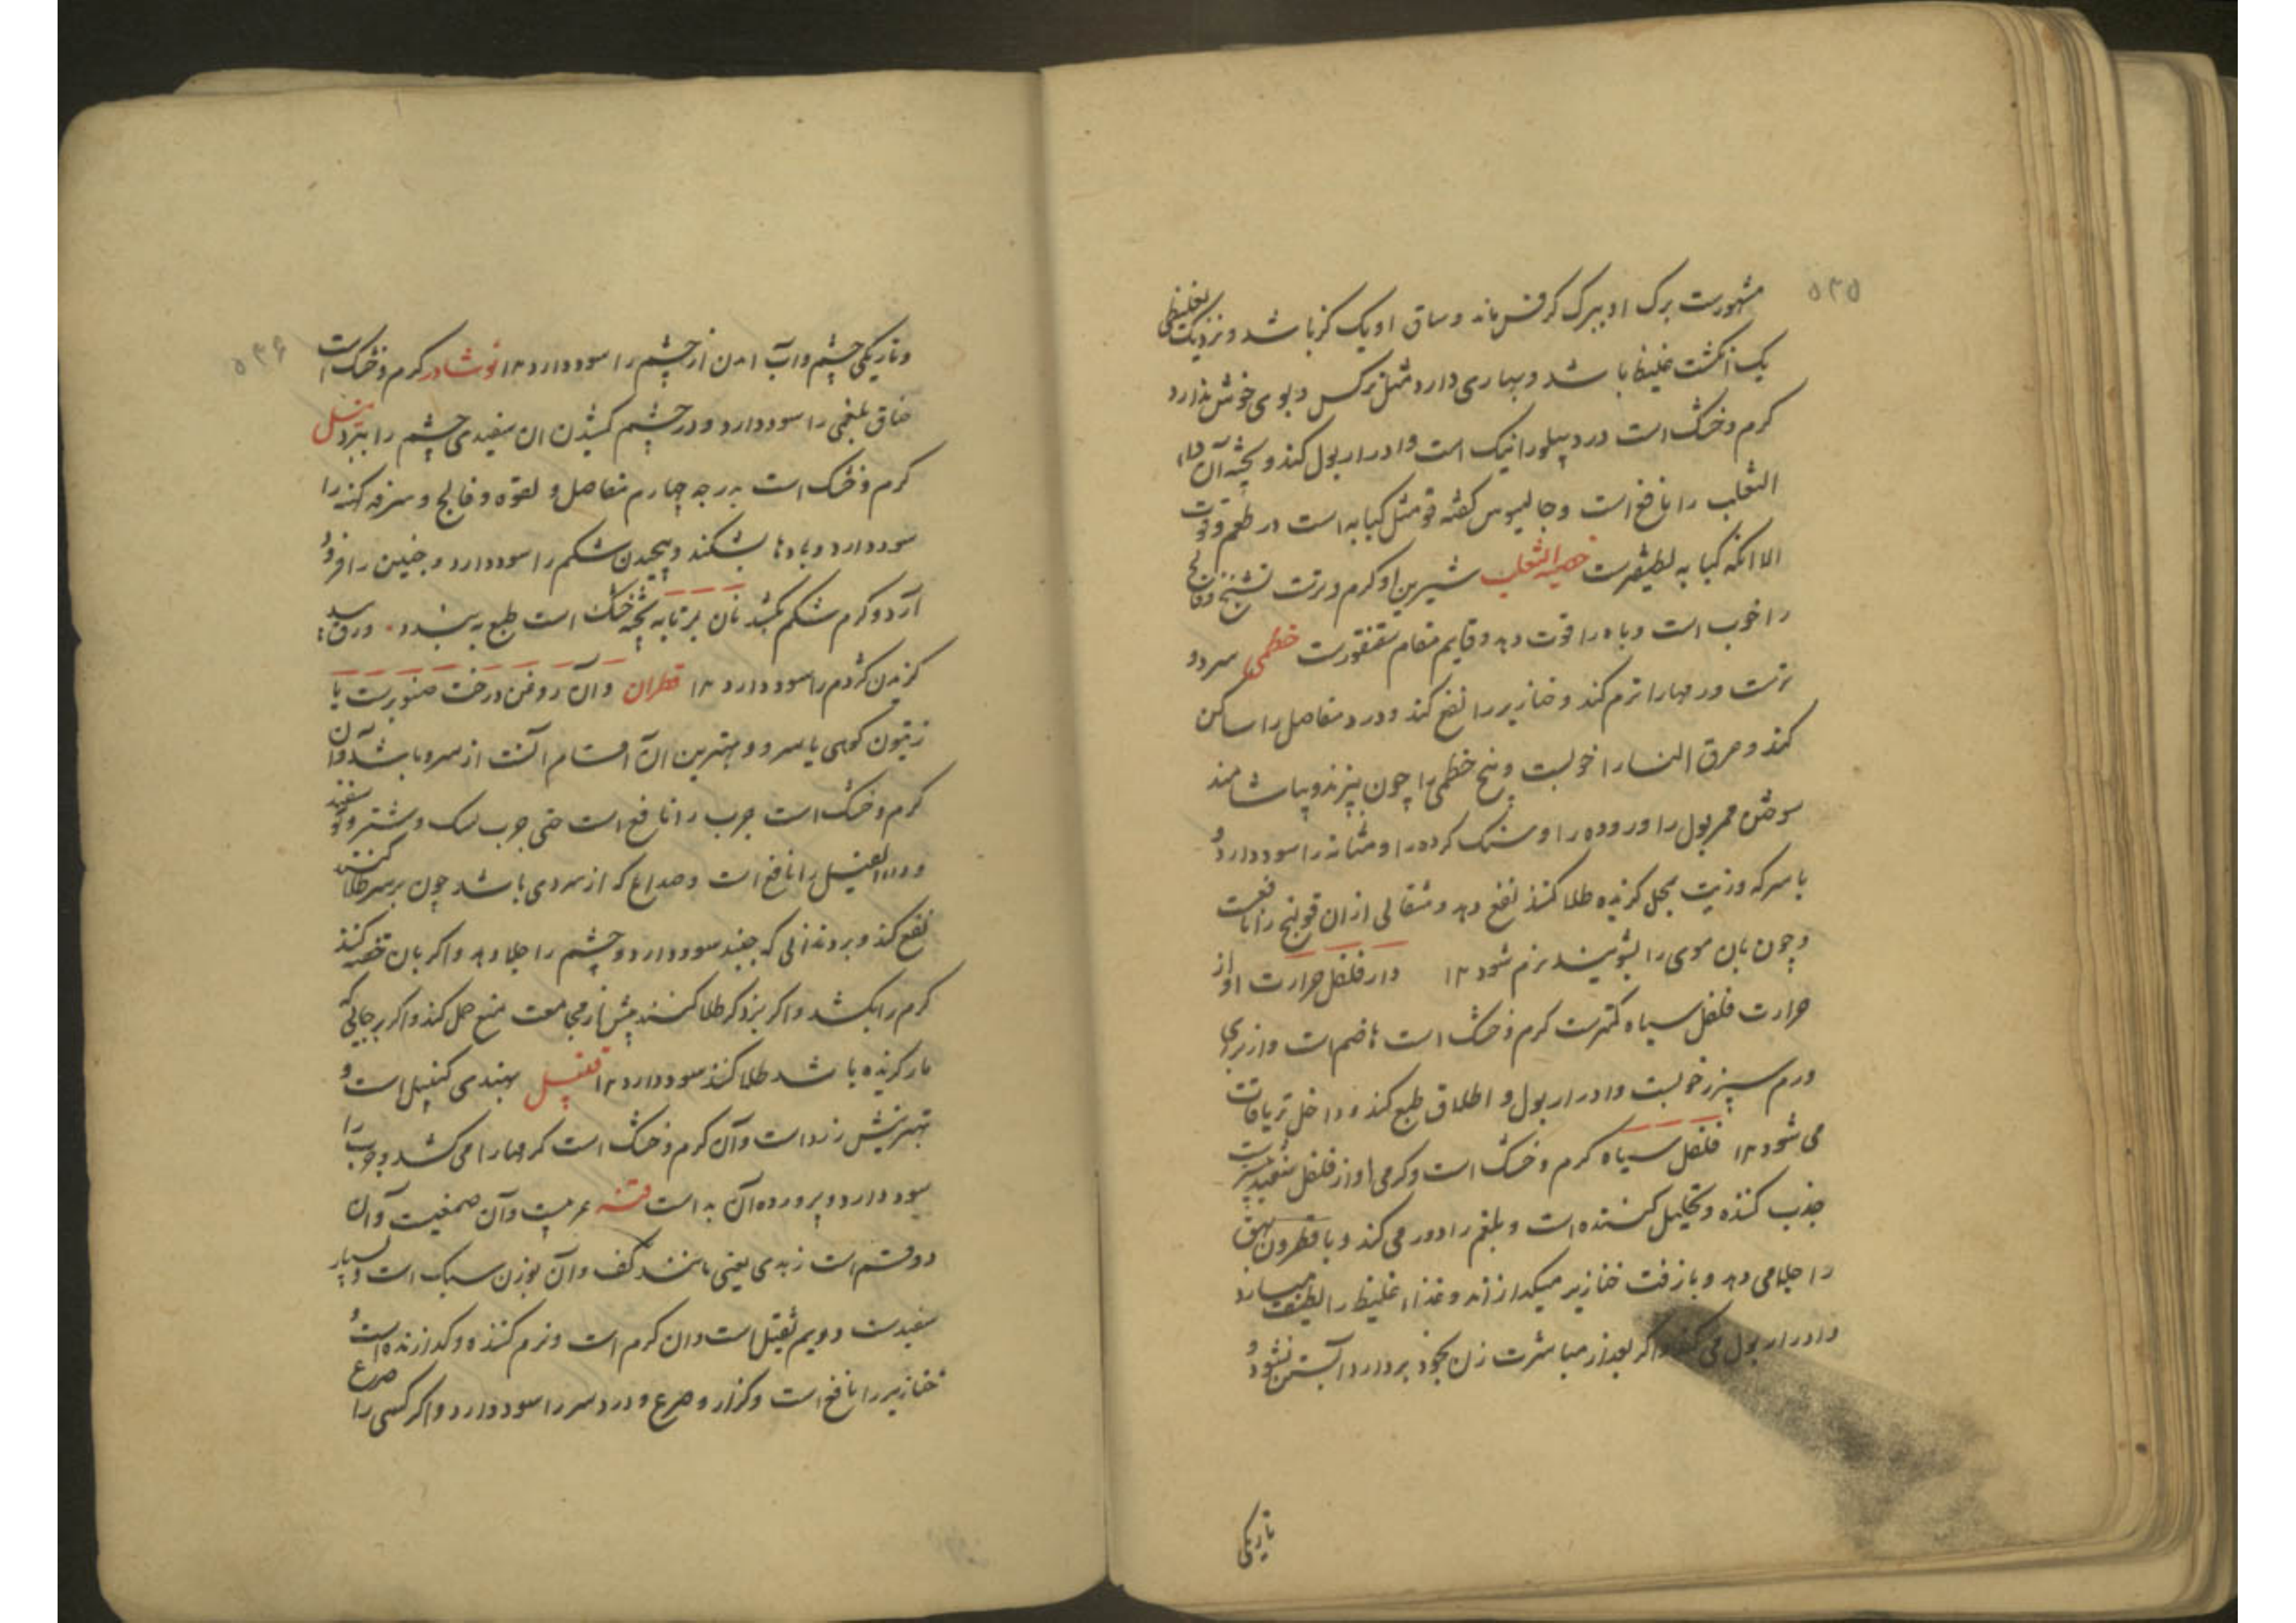 ۵۳۵
مشهورست برک او ببرک کرفس ماند و ساق او یک کز باشد و نزدیک بغلیظی
یک انکشت غلیظ باشد و بیاری دارد مثل نرکس و بوی خوش ندارد
کرم و خشک است درد پهلو را نیک است وادرار بول کند و پخته آن داء
الثعلب را نافع است و جالینوس کفته قو مثل کبابه است در طعم و قوت
الا انکه کبابه لطیفترست خصیة الثعلب شیرین او کرم و ترست تشنج و فالج
را خوب است و باه را قوت دهد و قایم مقام سقنقورست خطمی سرد و
ترست ورمها را نرم کند و خنازیر را نفع کند و درد مفاصل را ساکن
کند و عرق النسا را خوبست و بیخ خطمی را چون بپزند و بیاشامند
سوختن ممر بول را و روده را و سنک کرده را و مثانه را سود دارد و
با سرکه و زیت بمحل کزیده طلا کنند نفع دهد و مثقالی از ان قولنج را نافعست
و چون بان موی را بشویند نرم شود ۱۲ دار فلفل حرارت او از
حرارت فلفل سیاه کمترست کرم و خشک است هاضم است و از برای
ورم سپرز خوبست وادرار بول و اطلاق طبع کند و داخل تریاقات
می شود ۱۲ فلفل سیاه کرم و خشک است و کرمی او از فلفل سفید بیشترست
جذب کننده و تحلیل کننده است و بلغم را دور می کند و با نطرون بهق
را جلا می دهد و با زفت خنازیر میکدازاند و غذاء غلیظ را لطیف میسازد
وادرار بول می کند واکر بعد از مباشرت زن بخود بردارد آبستن نشود و
تاریکی
۵۳۶
و تاریکی چشم و آب امدن از چشم را سود دارد ۱۲ نوشادر کرم و خشک است
خناق بلغمی را سود دارد و در چشم کشیدن ان سفیدی چشم را ببرد
کرم و خشک است بدرجه چهارم مفاصل و لقوه و فالج و سرفه کهنه را
سود دارد و بادها بشکند و پیچیدن شکم را سود دارد و جنین را فرود
آرد و کرم شکم بکشد نان برتابه پخته خشک است طبع به بندد ورق
کزیدن کژدم را سود دارد ۱۲ قطران وآن روغن درخت صنوبرست یا
زیتون کوهی یا سرو و بهترین ان اقسام آنست از سرو باشد وان
کرم و خشک است جرب را نافع است حتی جرب سک و شتر و
وداء الفیل را نافع است و صداع که از سردی باشد چون بر سر طلا کنند
نفع کند و بر دندانی که جنبد سود دارد و چشم را جلا دهد واکر بان حقنه کنند
کرم را بکشد واکر بر ذکر طلا کنند پیش از مجامعت منع حمل کند واکر بر جائی که
مار کزیده باشد طلا کنند سود دارد ۱۲ قنبیل بهندی کنپیل است و
بهترینش زرد است وآن کرم و خشک است کرمها را می کشد و جرب را
سود دارد و پرورده آن بد است قنه عربیست وآن صمغیست وآن
دو قسم است زبدی یعنی مانند کف وآن بوزن سبک است و بسیار
سفیدست دویم ثقیل است وان کرم است و نرم کننده و کدازنده است و
خنازیر را نافع است و کزاز و صرع و درد سر را سود دارد واکر کسی را صرع